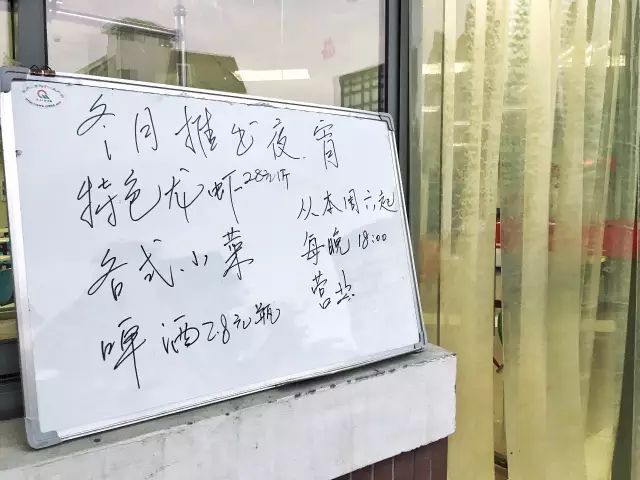 冬月推出夜宵
特色龙虾28元/斤
各式小菜
啤酒2.8元/瓶
从本周六起
每晚18:00
营业